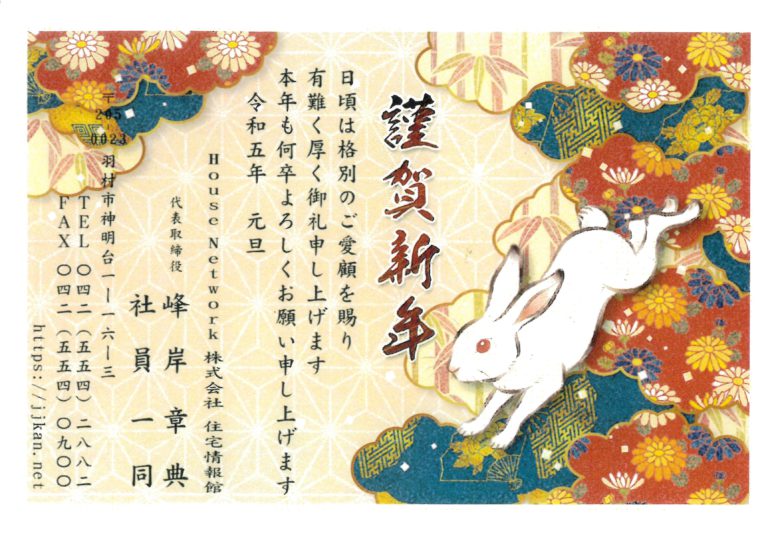 謹賀新年
日頃は格別のご愛顧を賜り
有難く厚く御礼申し上げます
本年も何卒よろしくお願い申し上げます
令和五年 元旦
House Network 株式会社 住宅情報館
代表取締役 峰岸章典
社員一同
〒205-0023 羽村市神明台一ー一六ー三
TEL 〇四二(五五四)二八八二
FAX 〇四二(五五四)〇九〇〇
https://jjkan.net